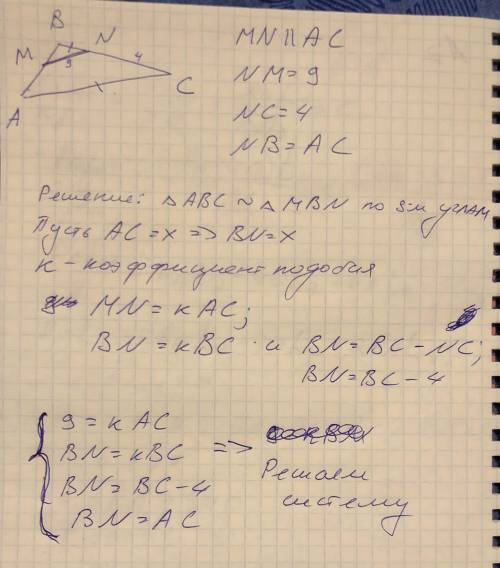 B
M N 4
9
C
A
MN || AC
NM = 9
NC = 4
NB = AC
Решение: △ABC ~ △MBN по 3-м углам
Пусть AC = x => BN = x
k - коэффициент подобия
MN = kAC;
BN = kBC и BN = BC - NC;
BN = BC - 4
9 = kAC
BN = kBC =>
BN = BC - 4
BN = AC
Решаем
систему